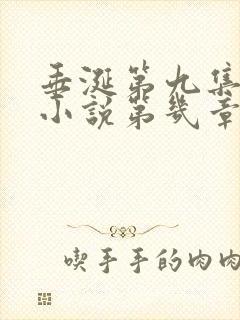 垂涎第九集
小说第几章
喫手手的肉肉